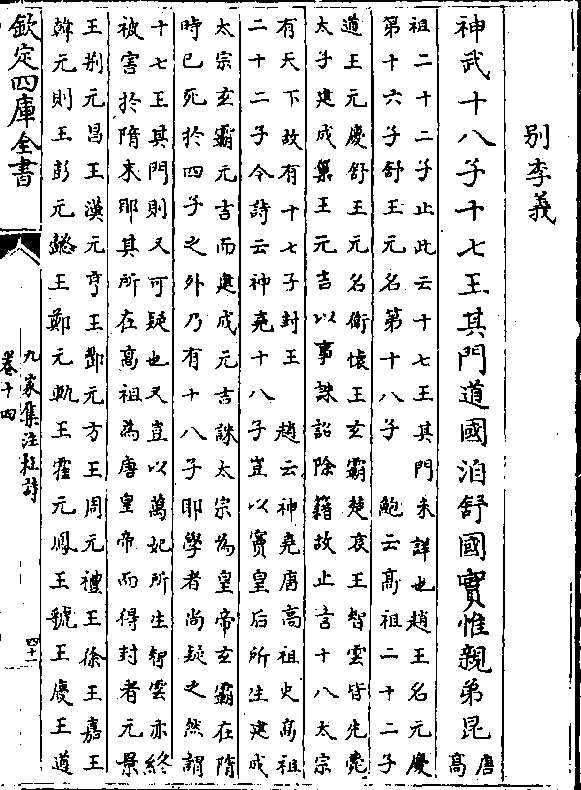 别李義
神武十八子十七王其門道國洎舒國實惟親弟昆唐
高
祖二十二子止此云十七王其門未詳也趙王名元慶
第十六子舒王元名第十八子　鮑云髙祖二十二子
道王元慶舒王元名衛懷王玄霸楚哀王智雲皆先薨
太子建成巢王元吉以事誅詔除籍故止言十八太宗
有天下故有十七子封王　趙云神堯唐高祖史高祖
二十二子今詩云神堯十八子豈以竇皇后所生建成
太宗玄霸元吉而建成元吉誅太宗為皇帝玄霸在隋
時已死於四子之外乃有十八子耶學者尚疑之然謂
十七王其門則又可疑也又豈以萬妃所生智雲亦終
被害於隋末耶其所在髙祖為唐皇帝而得封者元景
王荆元昌王漢元亨王酆元方王周元禮王徐王嘉王
韓元則王彭元懿王鄭元軌王霍元鳳王虢王慶王道
欽定四庫全書
九家集注杜詩
卷十四
四十一